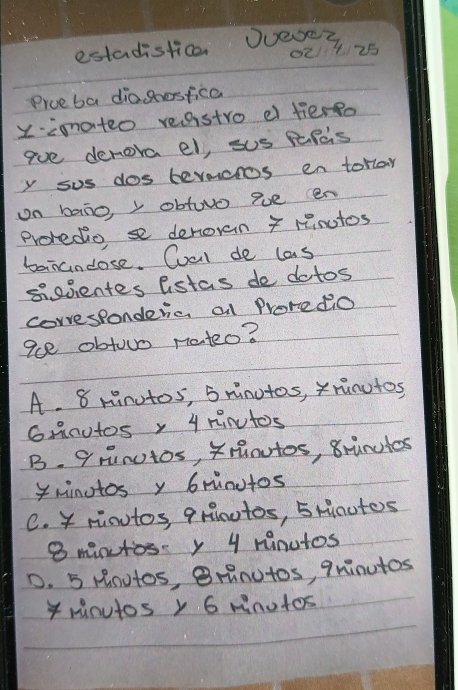 estadistica Jueves
02/4/25
Prueba diagnostica
1-¿mateo registro el tiempo
que demora el, sus papás
y sus dos hermanos en tomar
un baño, y obtuvo que en
Promedio, se demoran 7 minutos
bañandose. Cual de las
siguientes listas de datos
corresponderia al Promedio
que obtuvo mateo?
A. 8 minutos, 5 minutos, 7 minutos,
6 minutos y 4 minutos
B. 9 minutos, 7 minutos, 8 minutos
7 minutos y 6 minutos
C. 7 minutos, 9 minutos, 5 minutos
8 minutos y 4 minutos
D. 5 minutos, 8 minutos, 9 minutos
7 minutos y 6 minutos